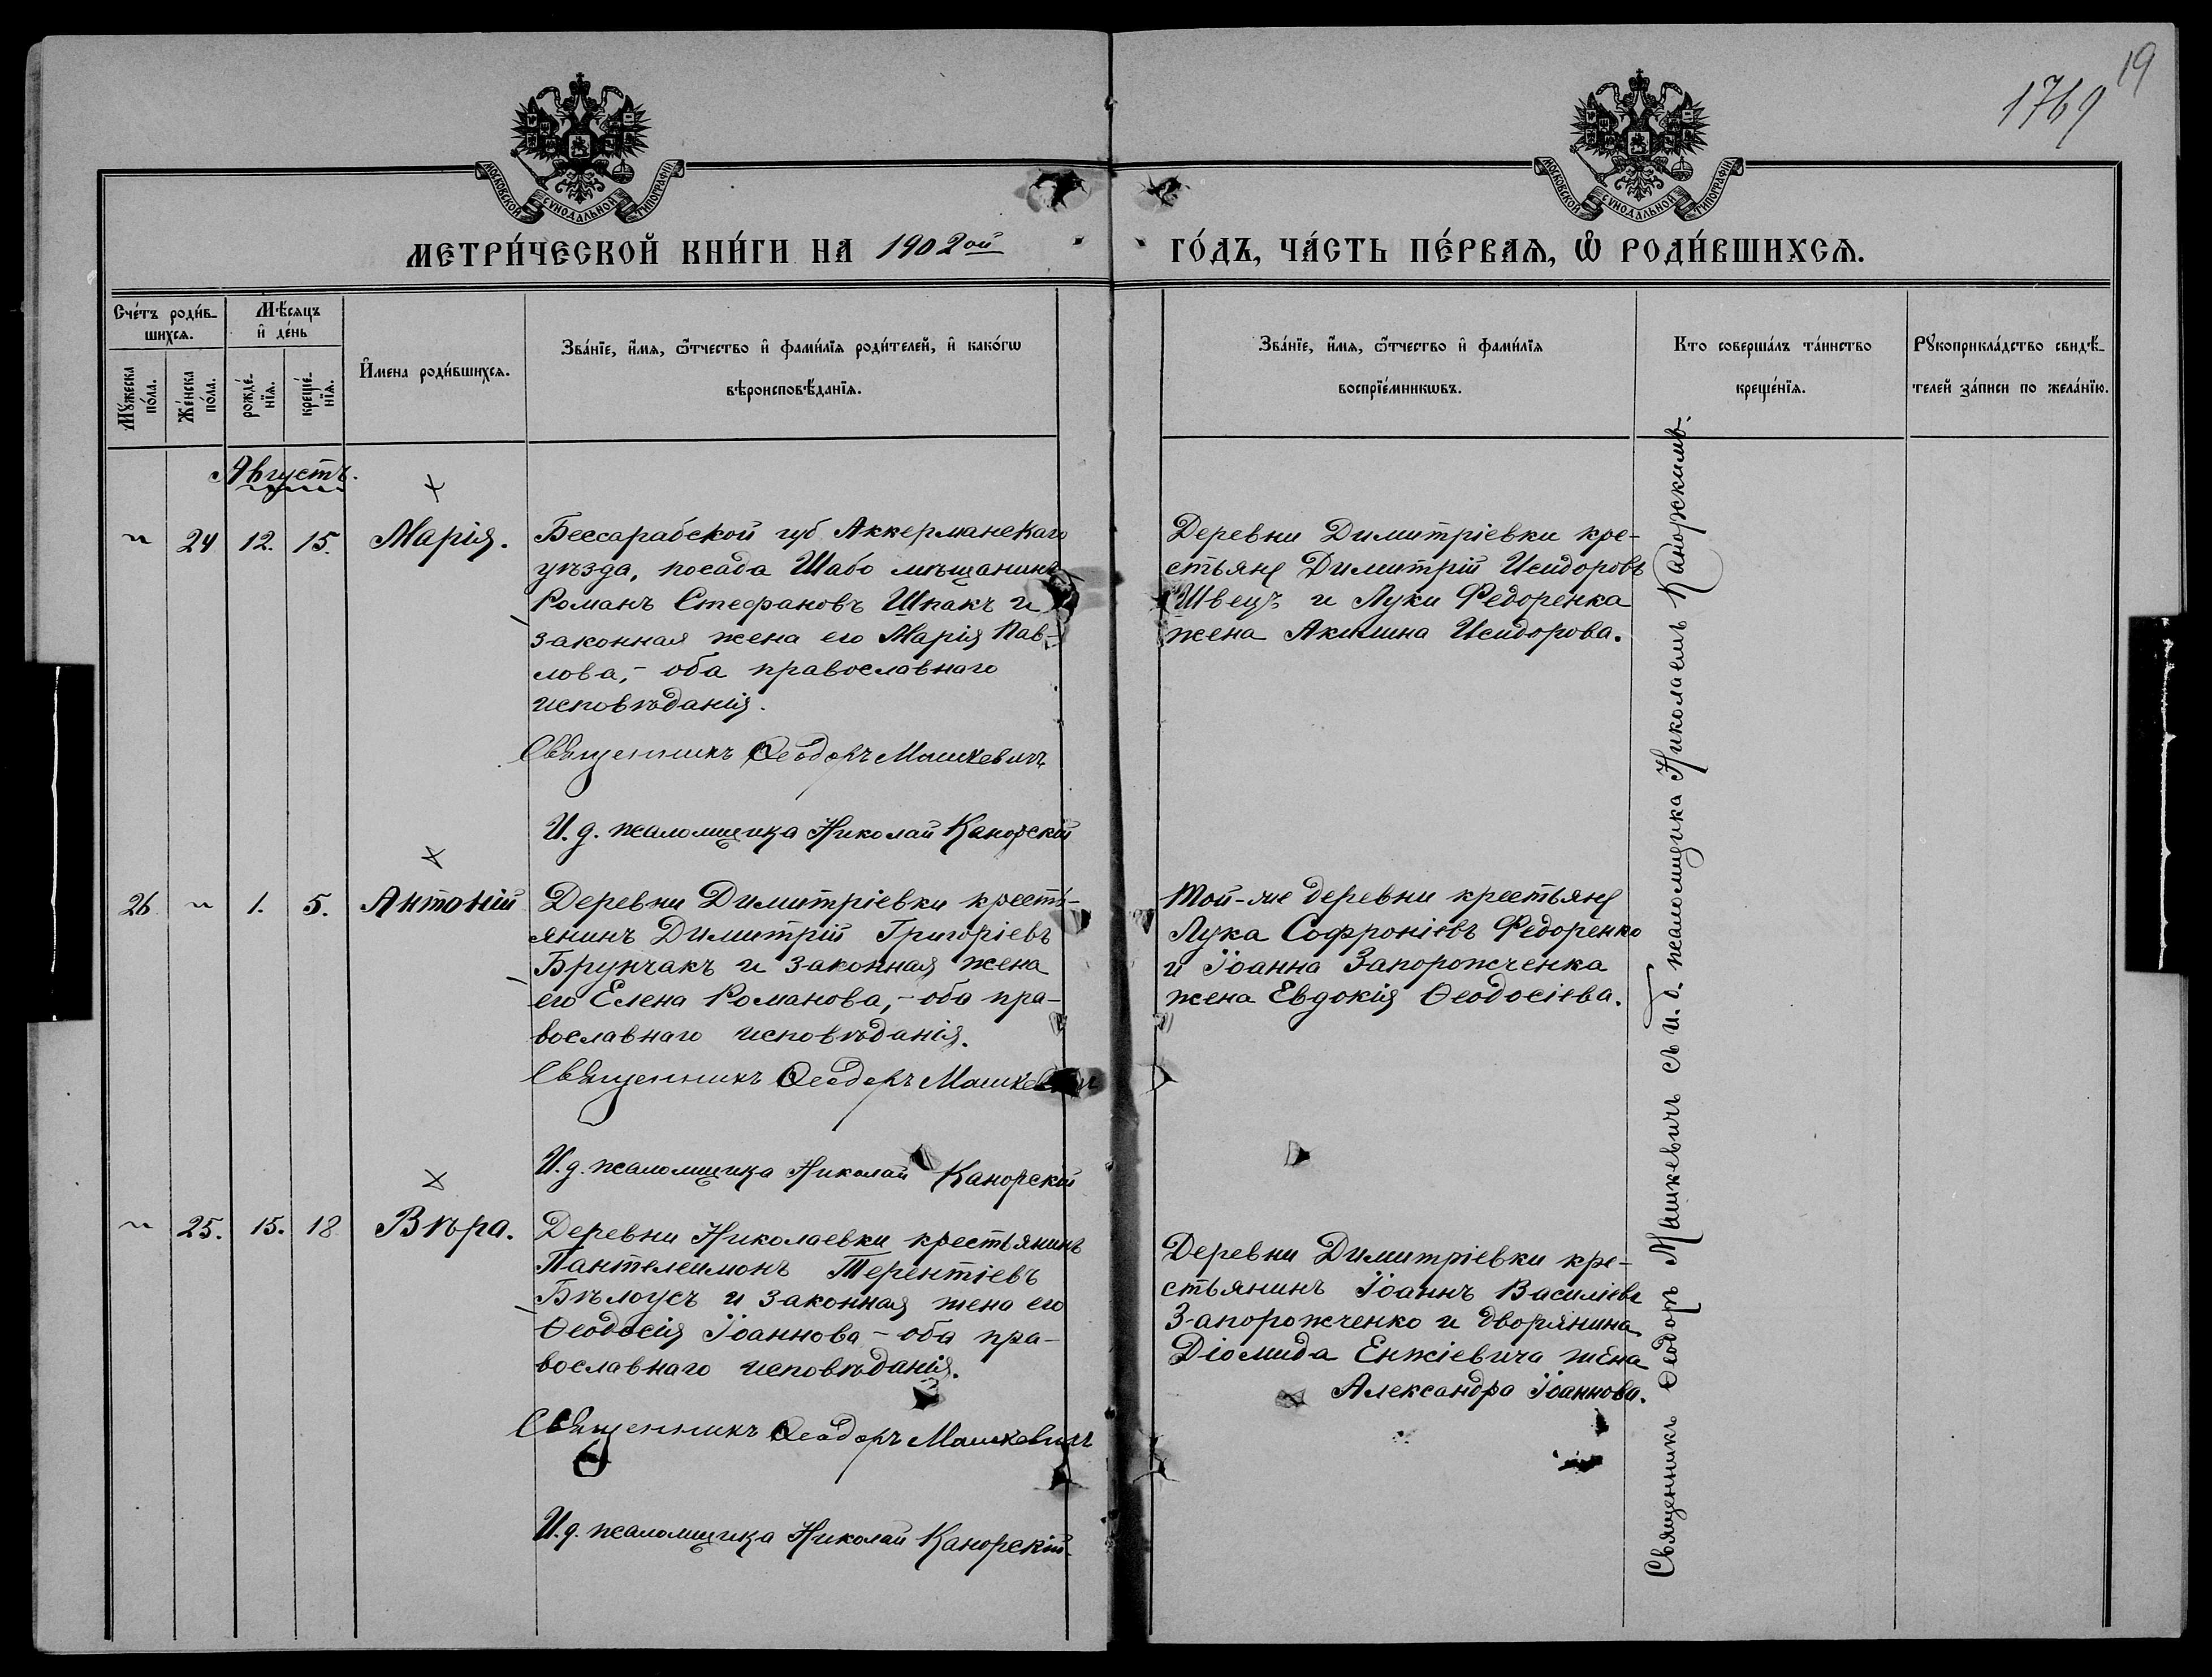 19
1769
МОСКОВСКОЙ СѴНОДАЛЬНОЙ ТИПОГРАФІИ
МОСКОВСКОЙ СѴНОДАЛЬНОЙ ТИПОГРАФІИ
МЕТРИ́ЧЕСКОЙ КНИ́ГИ НА 1902ой ГО́ДЪ, ЧА́СТЬ ПЕ́РВАѦ, Ѡ҆ РОДИ́ВШИХСѦ.
Сче́тъ роди́в-
шихсѧ.
Мѣ́сѧцъ
и҆ де́нь
Мꙋ́жеска
по́ла.
Же́нска
по́ла.
рожде́-
нїѧ.
креще́-
нїѧ.
И҆мена роди́вшихсѧ.
Зва́нїе, и҆́мѧ, ѻ҆́тчество и҆ фами́лїѧ роди́телей, и҆ како́гѡ
вѣроисповѣ́данїѧ.
Зва́нїе, и҆́мѧ, ѻ҆́тчество и҆ фами́лїѧ
воспрїе́мникѡвъ.
Кто соверша́лъ та́инство
креще́нїѧ.
Рꙋкоприкла́дство свидѣ́-
телей за́писи по жела́нїю.
Августъ.
24 12. 15. Марія.
Бессарабской губ Аккерманскаго
уѣзда, посада Шабо мѣщанинъ
Романъ Стефановъ Шпакъ и
законная жена его Марія Пав-
лова,- оба православнаго
исповѣданія.
Священникъ Ѳеодоръ Машкевичъ
И. д. псаломщика Николай Канорскій
Деревни Димитріевки кре-
стьяне Димитрій Исидоровъ
Швецъ и Луки Федоренка
жена Акилина Исидорова.
26 1. 5. Антоній
Деревни Димитріевки кресть-
янинъ Димитрій Григоріевъ
Брунчакъ и законная жена
его Елена Романова,- оба пра-
вославнаго исповѣданія.
Священникъ Ѳеодоръ Машкевичъ
И. д. псаломщика Николай Канорскій
Той-же деревни крестьяне
Лука Софроніевъ Федоренко
и Іоанна Запорожченка
жена Евдокія Ѳеодосіева.
25. 15. 18 Вѣра.
Деревни Николаевки крестьянинъ
Пантелеимонъ Терентіевъ
Бѣлоусъ и законная жена его
Ѳеодосія Іоаннова - оба пра-
вославнаго исповѣданія.
Священникъ Ѳеодоръ Машкевичъ
И. д. псаломщика Николай Канорскій
Деревни Димитріевки кре-
стьянинъ Іоаннъ Василіевъ
Запорожченко и дворянина
Діомида Енжіевича жена
Александра Іоаннова.
Священникъ Ѳеодоръ Машкевичъ съ и. д. псаломщика Николаемъ Канорскимъ.